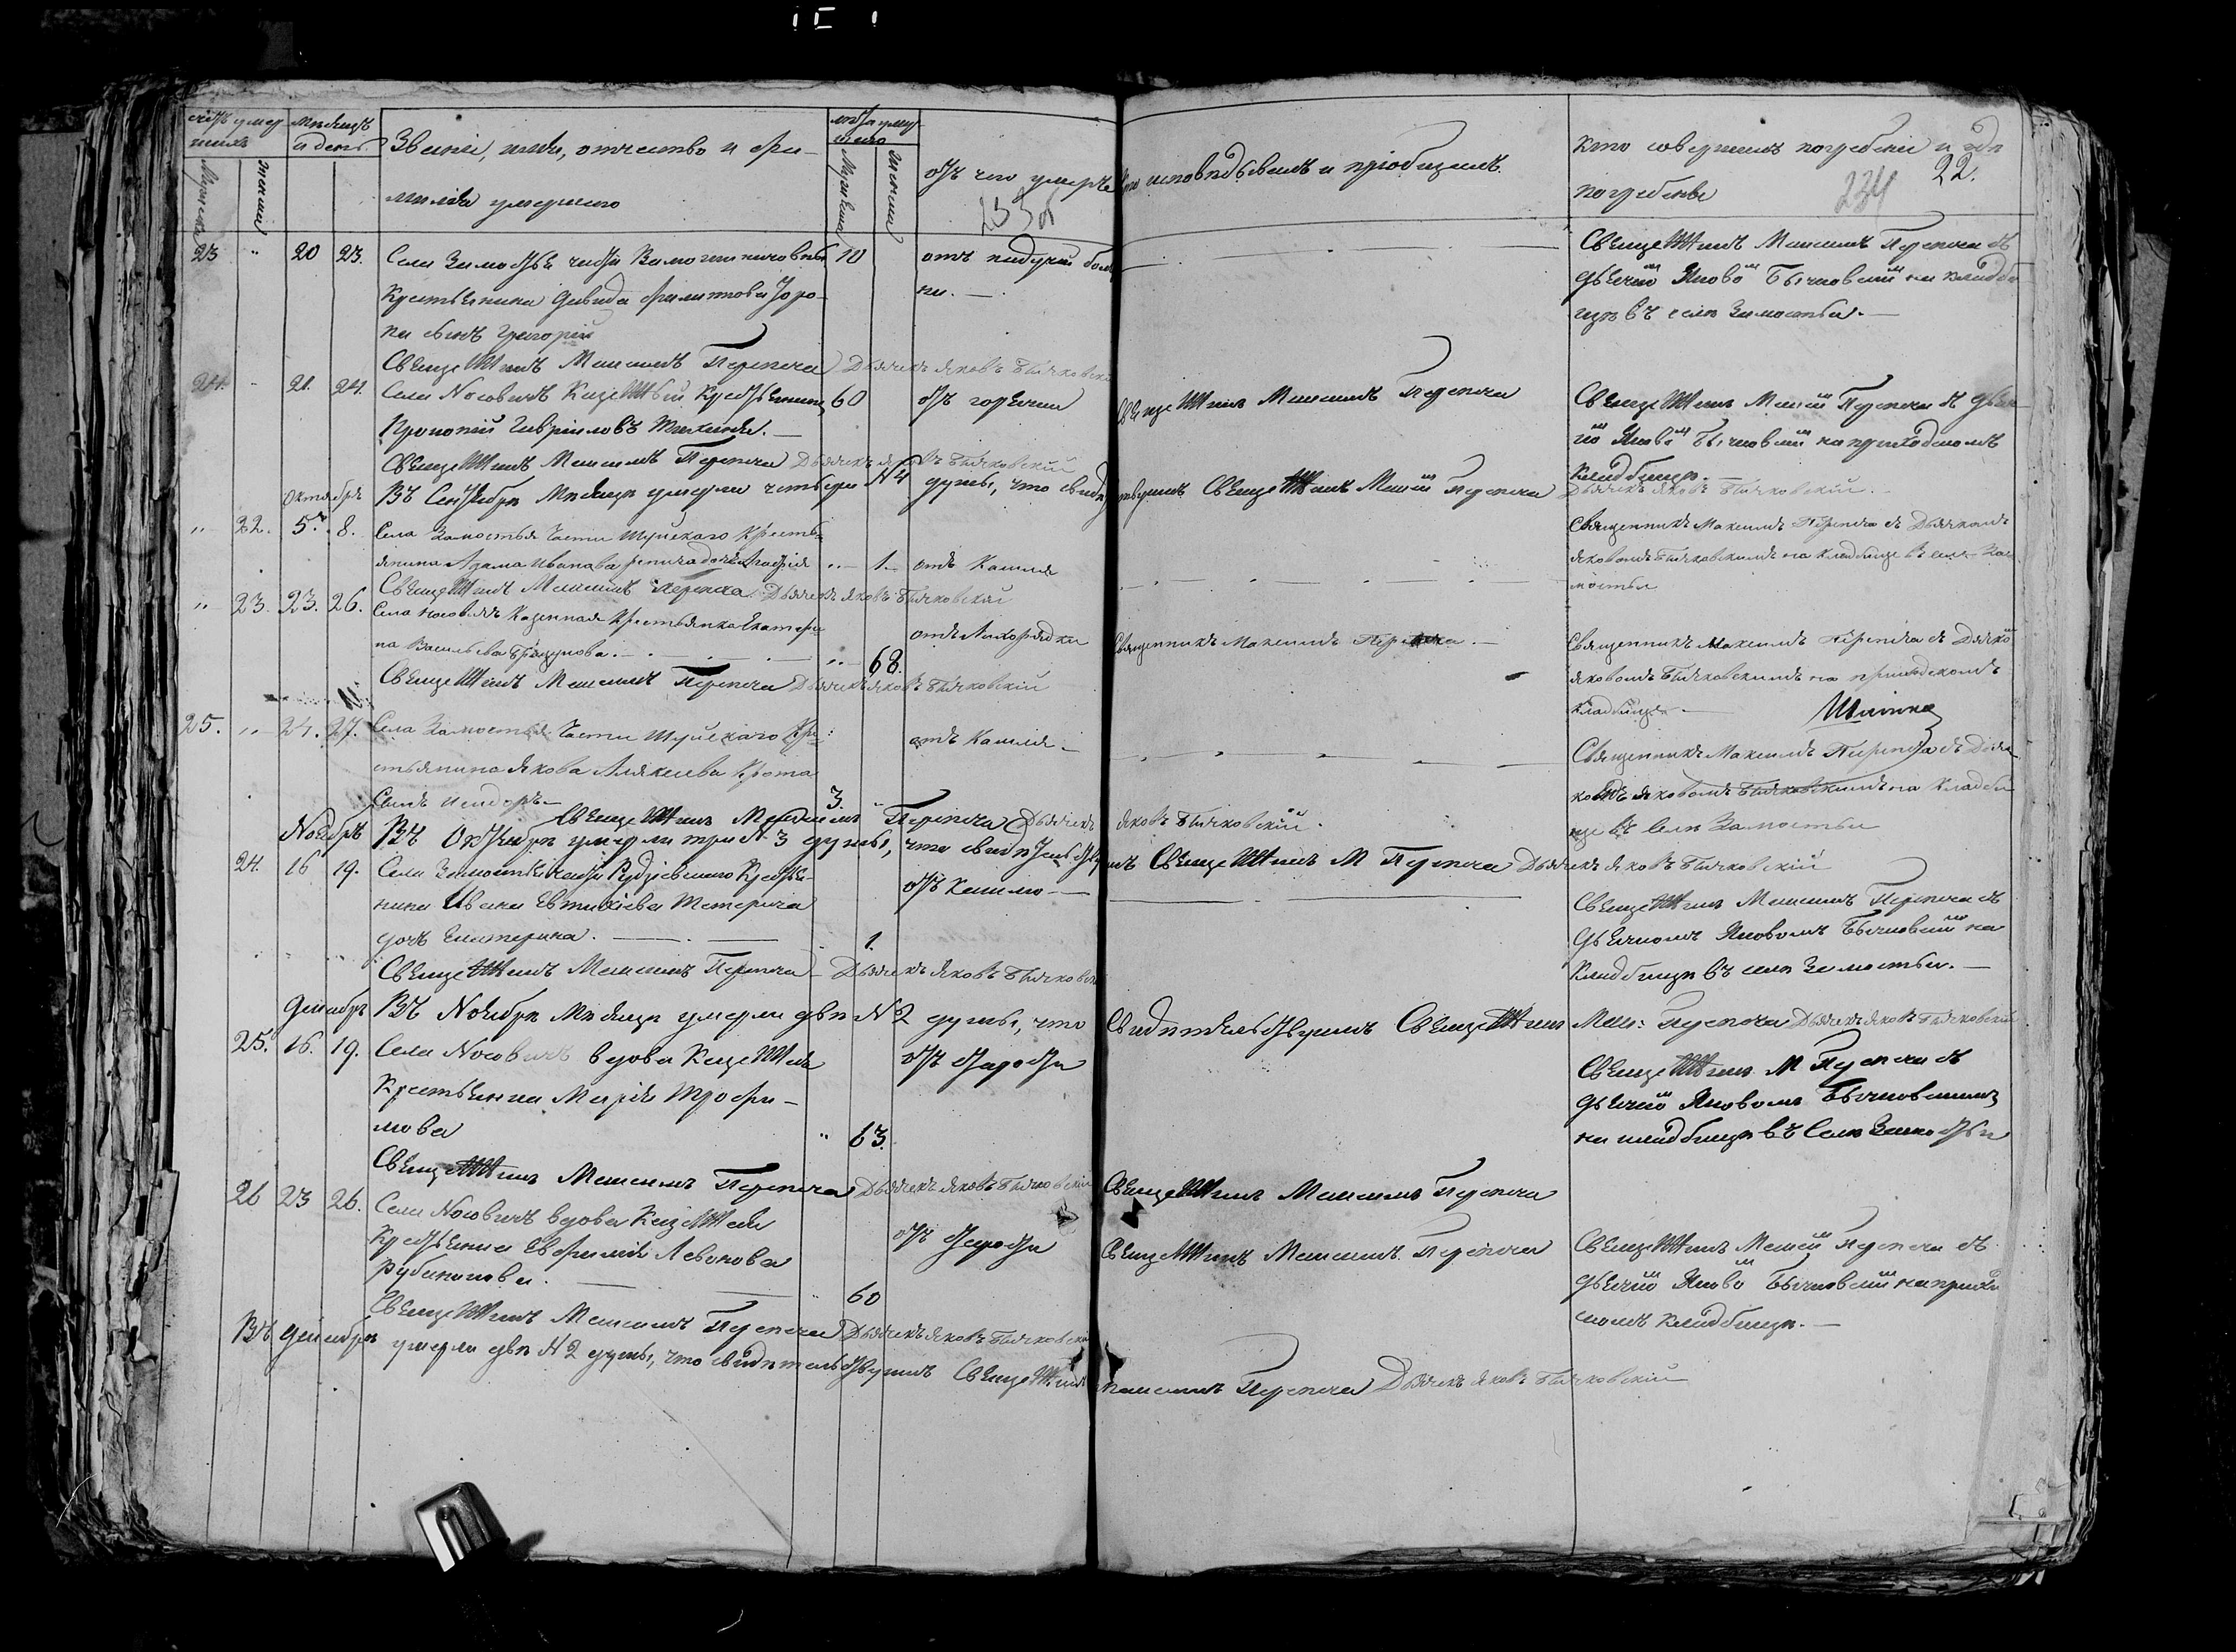 умер- мѣсяцъ лѣта умер-
шихъ и день шаго
Званіе, имя, отчество и фа-
милія умершаго
Мужеска женска Мужеска женска
отъ чего умеръ
233об
кто исповѣдывалъ и пріобщалъ.
кто совершалъ погребеніе и гдѣ
погребены
22.
234
23 " 20 23. Села Замостья части
крестьянина Давида Филиппова
сынъ Григорій
10 отъ падучей болѣ-
ни.
Священникъ Максимъ Перепеча съ
дьячкомъ Яковомъ Бычковскимъ на кладби-
щѣ въ селѣ Замостьи.
Священникъ Максимъ Перепеча Дьячекъ Яковъ Бычковскій
24. " 21. 24. Села Носовичъ Казенный Крестьянинъ 60 отъ горячки
Прокопій Гавріиловъ
Священникъ Максимъ Перепеча
Священникъ Максимъ Перепеча съ дьяч-
комъ Яковомъ Бычковскимъ на приходскомъ
кладбищѣ.
Священникъ Максимъ Перепеча Дьячекъ Яковъ Бычковскій
Октябрь Въ Сентябрѣ Мѣсяцѣ умерли четыре N 4 души, что свидѣтельствуемъ Священникъ Максимъ Перепеча
Дьячекъ Яковъ Бычковскій.
" 22. 5. 8. Села Замостья Части Шуйскаго Кресть-
янина Адама Иванова дочь " 1. отъ Кашля
Священникъ Максимъ Перепеча съ Дьячкомъ
Яковомъ Бычковскимъ на кладбище въ селе За-
мостьи
Священникъ Максимъ Перепеча. Дьячекъ Яковъ Бычковскій
" 23. 23. 26. Села Носовичъ Казенная Крестьянка Екатери-
на Васильева " 68. отъ Лихорадки
Священникъ Максимъ Перепеча.
Священникъ Максимъ Перепеча съ Дьячко
Яковомъ Бычковскимъ на приходскомъ
Кладбище
Священникъ Максимъ Перепеча Дьячекъ Яковъ Бычковскій
25. " 24. 27. Села Замостья Части Шуйскаго Кре-
стьянина Якова Алексеева Крота
Сынъ 3. " отъ Кашля
Священникъ Максимъ Перепеча съ Дьяч-
комъ Яковомъ Бычковскимъ на Кладби-
ще въ Селѣ Замостьи
Священникъ Максимъ Перепеча Дьячекъ Яковъ Бычковскій.
Ноябрь Въ Октябрѣ умерли три N 3 души, что свидѣтельствуемъ Священникъ М Перепеча Дьячекъ Яковъ Бычковскій
24. 16 19. Села Замостья части Крестья-
нина Ивана Евтихіева Тетерича
дочь Екатерина. 1. отъ Кашлю
Священникъ Максимъ Перепеча съ
дьячкомъ Яковомъ Бычковскимъ на
кладбищѣ въ селѣ Замостьи.
Священникъ Максимъ Перепеча Дьячекъ Яковъ Бычковскій
Декабрь Въ Ноябрѣ Мѣсяцѣ умерли двѣ N 2 души, что свидѣтельствуемъ Священникъ Макс: Перепеча Дьячекъ Яковъ Бычковскій
25. 16. 19. Села Носовичъ вдова Казенная
Крестьянка Марія Трофи-
мова " 63. отъ старости
Священникъ М Перепеча съ
дьячкомъ Яковомъ Бычковскимъ
на кладбищѣ въ Селѣ Замостьи
Священникъ Максимъ Перепеча Дьячекъ Яковъ Бычковскій
Священникъ Максимъ Перепеча
26 23 26. Села Носовичъ вдова Казенная
Крестьянка Евфимія Левонова
" 60 отъ старости
Священникъ Максимъ Перепеча
Священникъ Максимъ Перепеча съ
дьячкомъ Яковомъ Бычковскимъ на приход-
скомъ кладбищѣ.
Священникъ Максимъ Перепеча Дьячекъ Яковъ Бычковскій
Въ Декабрѣ умерли двѣ N 2 души, что свидѣтельствуемъ Священникъ Максимъ Перепеча Дьячекъ Яковъ Бычковскій